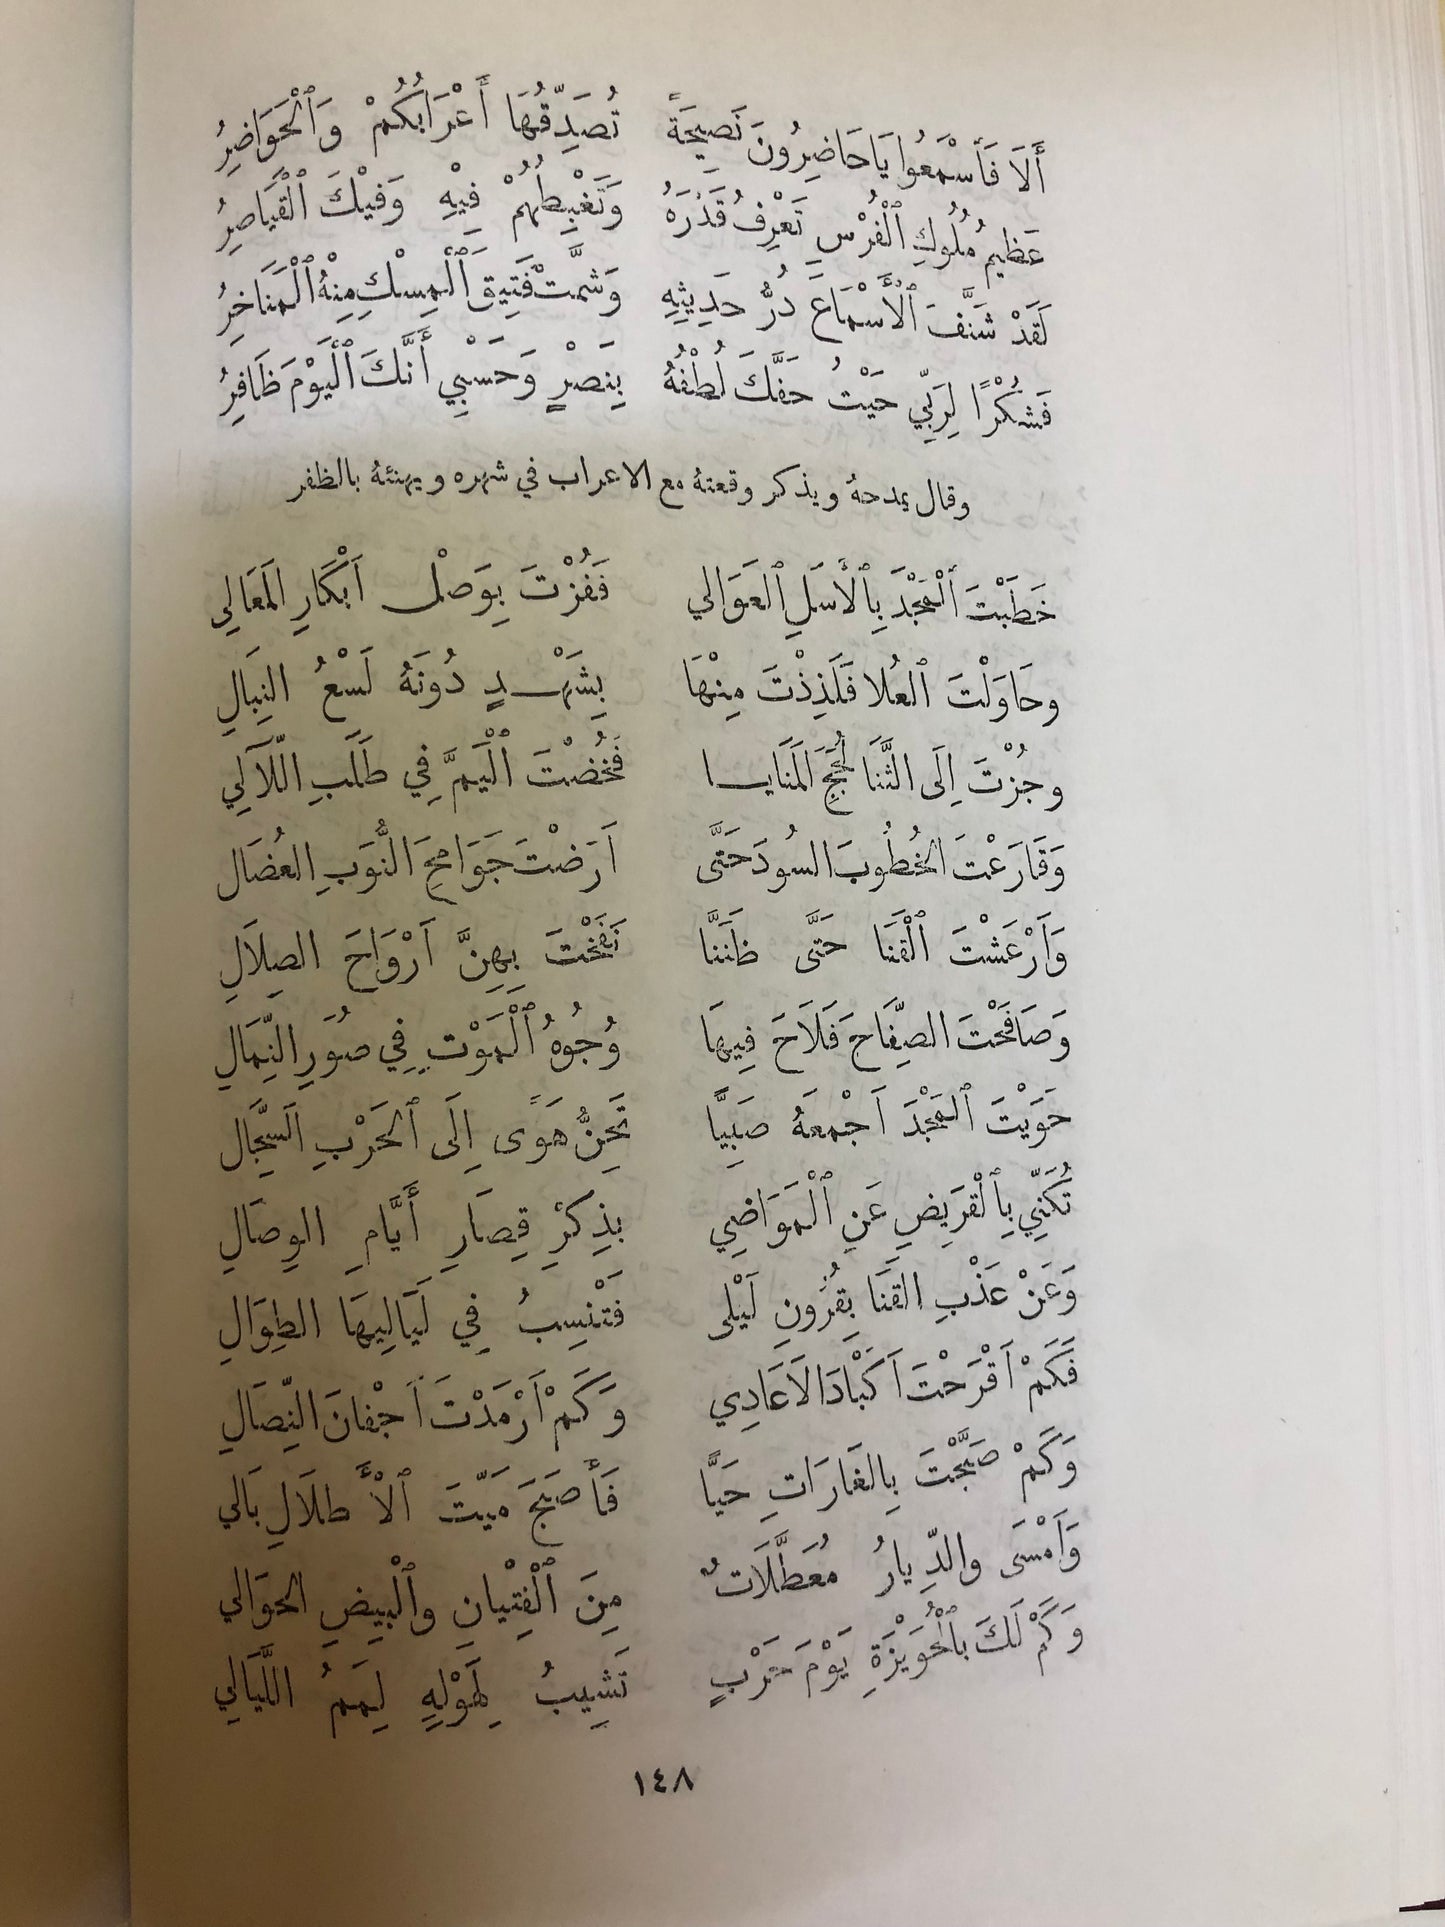 أَلَا فَاسْمَعُوا يَا حَاضِرُونَ نَصِيحَةً تُصَدِّقُهَا أَعْرَابُكُمْ وَالْحَوَاضِرُ
عَظِيمُ مُلُوكِ الْفُرْسِ تَعْرِفُ قَدْرَهُ وَتَغْبِطُهُمْ فِيْهِ وَفِيْكَ الْقَيَاصِرُ
لَقَدْ شَنَّفَ الْأَسْمَاعَ دُرُّ حَدِيثِهِ وَشَمَّتْ فَتِيقَ الْمِسْكِ مِنْهُ الْمَنَاخِرُ
فَشُكْرًا لِرَبِّي حَيْثُ حَفَّكَ لُطْفُهُ بِنَصْرٍ وَحَسْبِي أَنَّكَ الْيَوْمَ ظَافِرُ
وقال يمدحهُ ويذكر وقعتهُ مع الاعراب في شهره ويهنئهُ بالظفر
خَطَبْتَ الْمَجْدَ بِالْأَسَلِ الْعَوَالِي فَفُزْتَ بِوَصْلِ اَبْكَارِ الْمَعَالِي
وحَاوَلْتَ الْعُلا فَلَذِذْتَ مِنْهَا بِشَهْدٍ دُونَهُ لَسْعُ النِبَالِ
وجُزْتَ اِلَى الثَّنَا لُجَجَ الْمَنَايا فَخُضْتَ الْيَمَّ فِي طَلَبِ اللّآلِي
وَقَارَعْتَ الخُطُوبَ السُودَ حَتَّى اَرَضْتَ جَوَامِحَ النُّوَبِ العُضَالِ
وَاَرْعَشْتَ الْقَنَا حَتَّى ظَنَنَّا نَفَخْتَ بِهِنَّ اَرْوَاحَ الصِلَالِ
وَصَافَحْتَ الصِّفَاحَ فَلَاحَ فِيهَا وُجُوهُ الْمَوْتِ فِي صُوَرِ النِّمَالِ
حَوَيْتَ الْمَجْدَ اَجْمعَهُ صَبِيًّا تَحِنُّ هَوًى اِلَى الْحَرْبِ السِّجَالِ
تُكَنِّي بِالْقَرِيضِ عَنِ الْمَوَاضِي بِذِكْرِ قِصَارِ أَيَّامِ الوِصَالِ
وَعَنْ عَذْبِ القَنَا بِقُرُونِ لَيْلَى فَتَنْسِبُ فِي لَيَالِيهَا الطِوَالِ
فَكَمْ اَقْرَحْتَ اَكْبَادَ الْاَعَادِي وَكَمْ اَرْمَدْتَ اَجْفانَ النِّصَالِ
وَكَمْ صَبَّحْتَ بِالغَارَاتِ حَيًّا فَأَصبَحَ مَيّتَ الْأَطلَالِ بَالِي
وَاَمْسَى والدِّيارُ مُعَطَّلَاتٌ مِنَ الْفِتْيانِ والْبِيْضِ الحوَالِي
وَكَمْ لَكَ بالْحُوَيْزَةِ يَوْمَ حَرْبٍ تَشِيبُ لِهَوْلِهِ لِمَمُ اللَّيَالِي
١٤٨